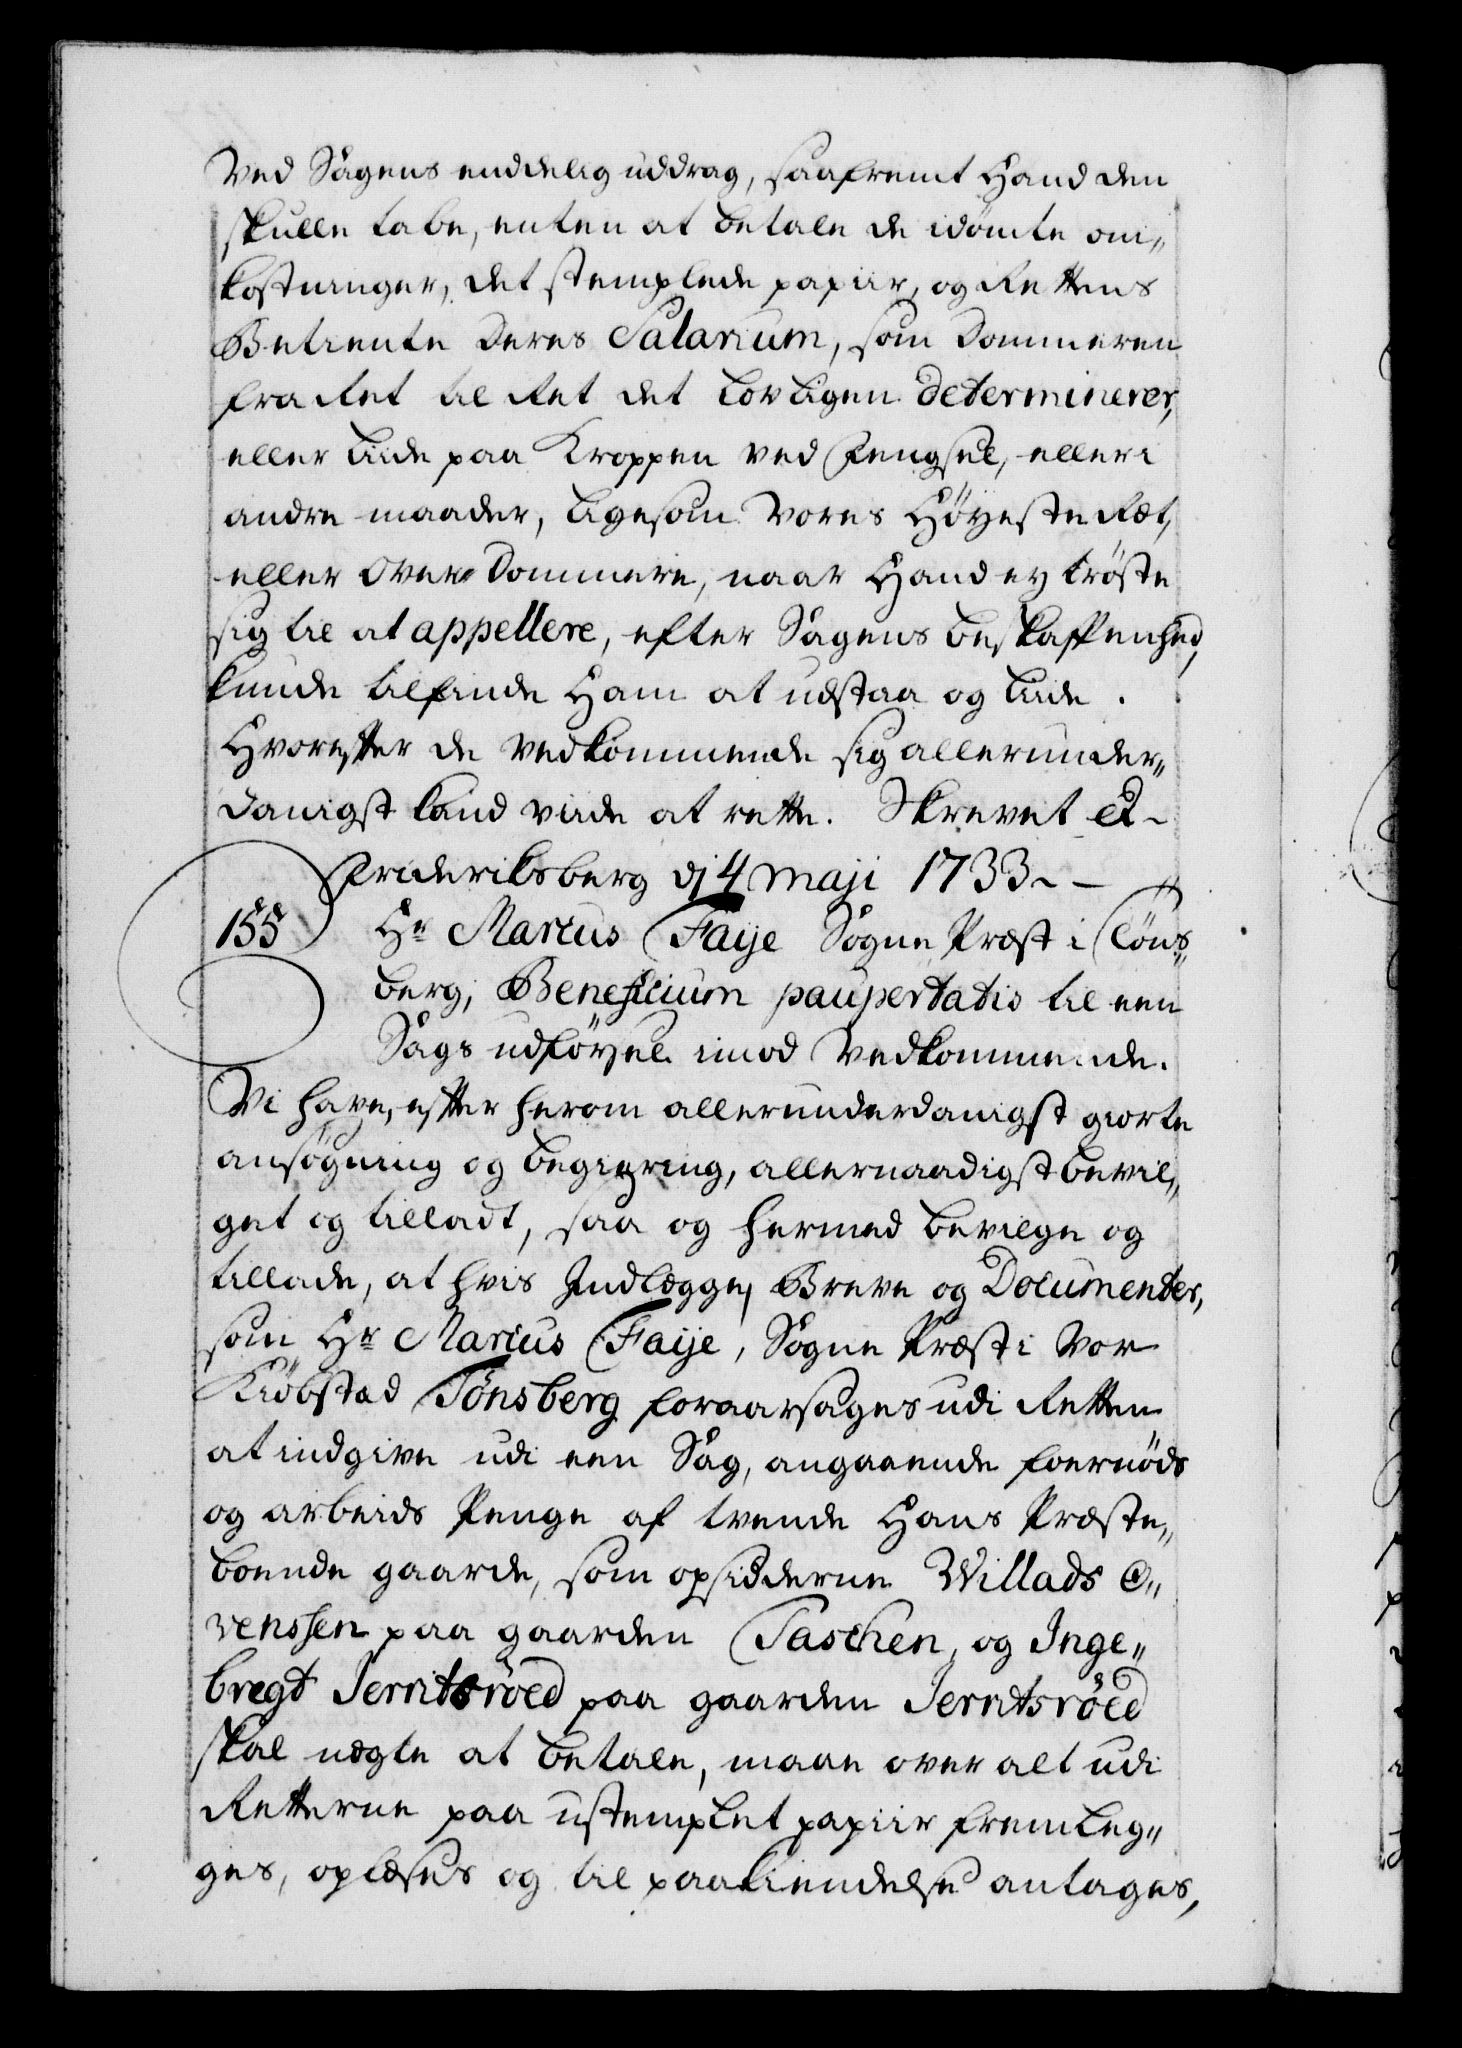 Ved Sagens endelig uddrag, saafremt Hand den
skulle tabe, enten at betale de idømte om„
kostninger, det stemplede papiir, og Rettens
Betiente deres Salarium, som Dommeren
fra Ret til Ret det lovligen determinerer,
eller liide paa Kroppen ved Fengsel, eller i
andre maader, ligesom Vores Høyeste Ræt,
eller Over Dommere, naar Hand ey trøste
sig til at appellere, efter Sagens beskaffenhed,
kunde tilfinde Ham at udstaa og liide.
Hvorefter de Vedkommende sig allerunder„
danigst kand viide at rette. Skrevet &
Frideriksberg dj 4 maji 1733.
155 Hr Marcus Faije Sogne Præst i Tøns„
berg, Beneficium paupertatis til een
Sags udførsel imod Vedkommende.
Vi have, efter herom allerunderdanigst giorte
ansøgning og begiering, allernaadigst bevil„
get og tilladt, saa og hermed bevilge og
tillade, at hvis Indlægge, Breve og Documenter,
som Hr Marcus Faije, Sogne Præst i Vor
Kiøbstad Tønsberg foraarsages udi Retten
at indgive udi een Sag, angaaende foernøds
og arbeids Penge af tvende Hans Præste„
boende gaarde, som opsidderne Willads O„
venssen paa gaarden Taschen, og Inge„
bregt Jerntsrøed paa gaarden Jerntsrøed
skal negte at betale, maae over alt udi
Retterne paa ustemplet papiir fremleg„
ges, oplæses og til paakiendelse antages,